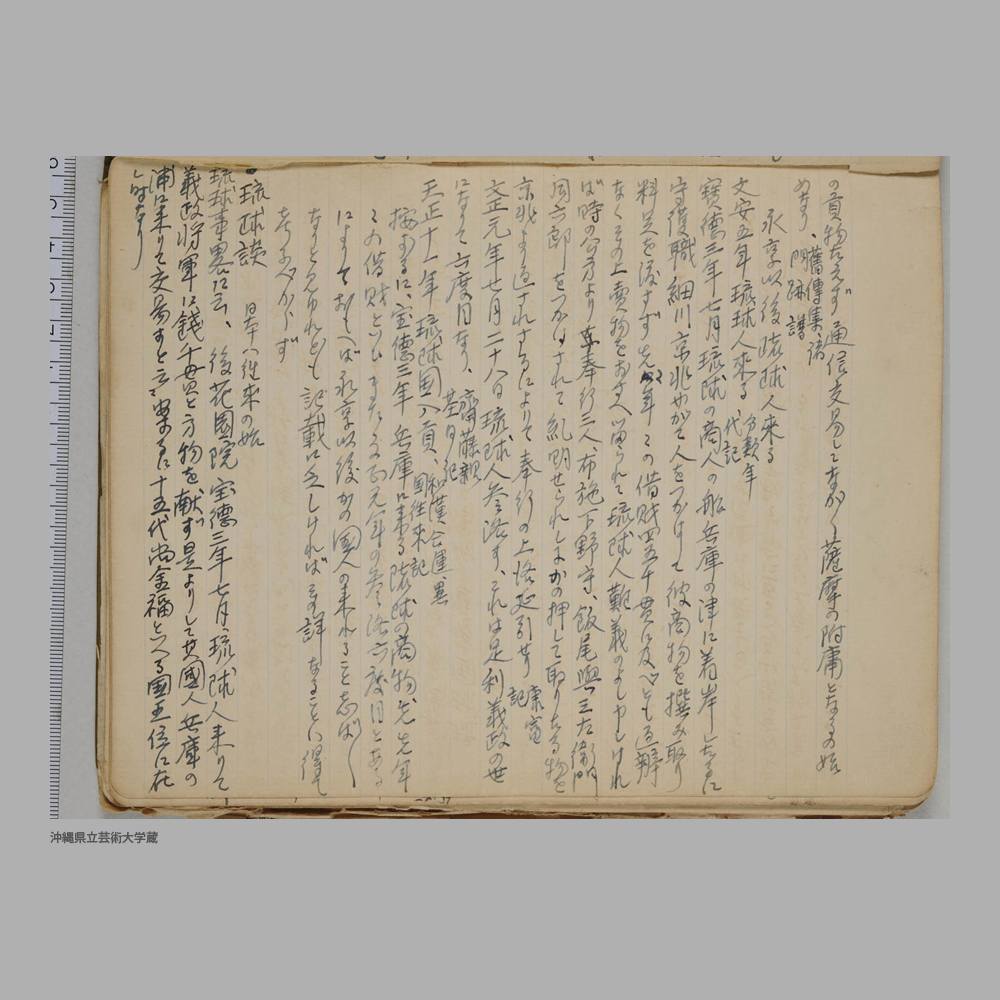 の貢物たえず通信交易してながく薩摩の附庸となるの始
めなり、舊傳集、諸門跡譜
永享以後琉球人来る
文安五年琉球人来る 分類年代記
寶徳三年七月琉球の商人の船兵庫の津に着岸したるに
守護職細川京兆やがて人をつかはして彼商物を撰み取り
料足を渡さず先々年この借財四五千貫に及べとも返辨
なくその上賣物をおさへ留られて琉球人難義のよし申しけれ
ば時の公方より奉行三人、布施下野守、飯尾與三左衛門
同六郎をつかはされて糺明せられしにかの押して取りたる物を
京兆より返されざるによりて奉行の上洛延引せり 康富記
文正元年七月二十八日琉球人参洛す、それは足利義政の世
になりて六度目なり、齋藤親基日記
天正十一年琉球国入貢、和漢合運、異国往来記
按ずるに、宝徳三年兵庫に来る琉球の商物、先先年
この借財といひまた文正元年の参洛六度目とある
によりておもへば永享以後かの国人の来れること志ばし
なりと見ゆれども記載に乏しければその詳なることハ得て
考ふべからず
琉球談 日本へ往来の始
琉球事畧に云、後花園院宝徳三年七月琉球人来りて
義政将軍に銭千貫と方物を献ず是よりして其國人兵庫の
浦に来りて交易すと云〻案るに十五代尚金福といへる國王位に在
し時なり
沖縄県立芸術大学蔵